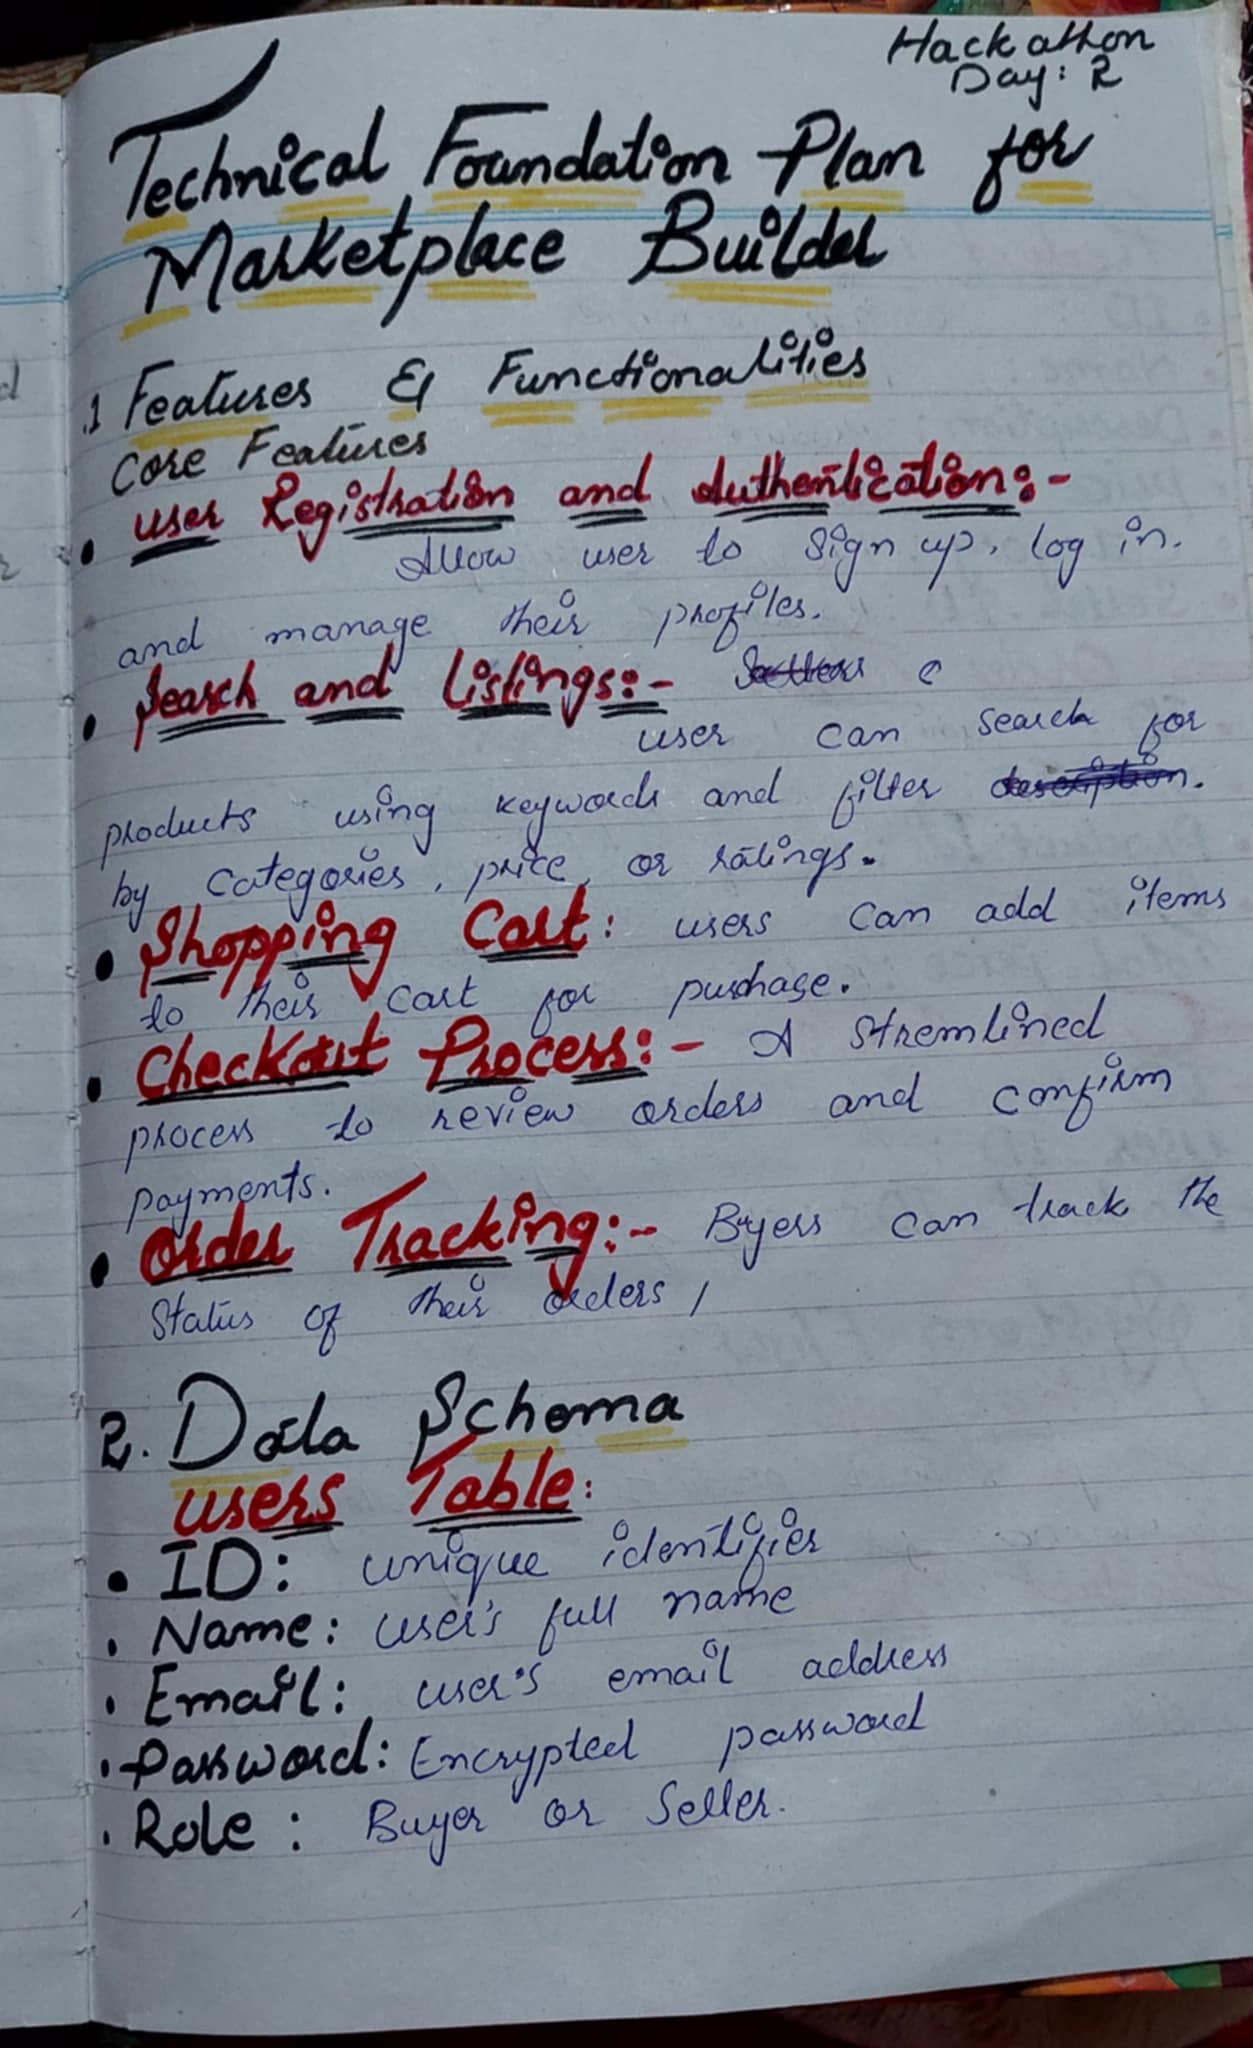 Hackathon
Day: 2
Technical Foundation Plan for
Marketplace Builder
.1 Features & Functionalities
Core Features
• User Registration and Authentication:-
Allow user to Sign up, log in.
and manage their profiles.
• Search and Listings:-
user can search for
products using keywords and filter description.
by Categories, price, or ratings.
• Shopping Cart: users can add items
to their Cart for purchage.
• Checkout Process:- A Stremlined
process to review orders and confirm
payments.
• Order Tracking:- Byers can track the
Status of their orders,
2. Data Schema
users Table:
• ID: unique identifier
• Name: user's full name
• Email: user's email address
• Password: Encrypted password
• Role: Buyer or Seller.